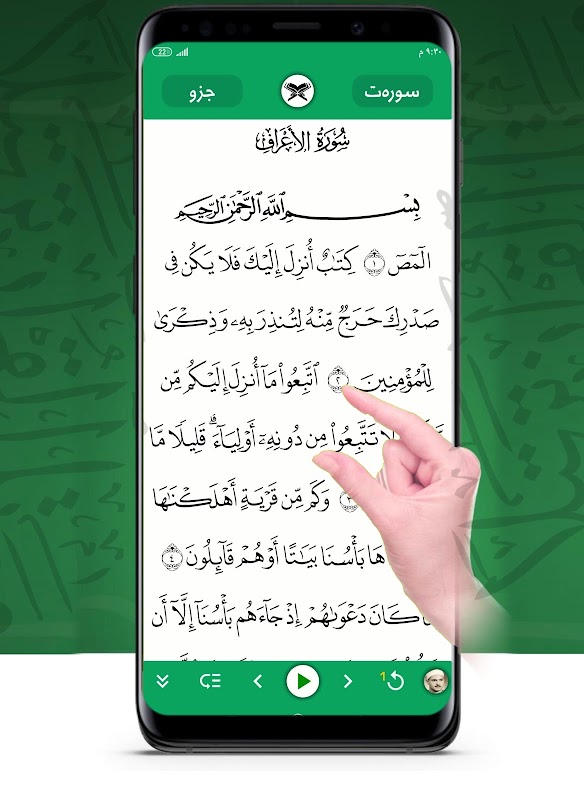 ٩:٣٠ م
22
سورەت
جزو
سُورَةُ الأَعْرَافِ
بِسْمِ اللَّهِ الرَّحْمَٰنِ الرَّحِيمِ
الٓمٓصٓ ١ كِتَٰبٌ أُنزِلَ إِلَيْكَ فَلَا يَكُن فِى
صَدْرِكَ حَرَجٌ مِّنْهُ لِتُنذِرَ بِهِۦ وَذِكْرَىٰ
لِلْمُؤْمِنِينَ ٢ ٱتَّبِعُوا۟ مَآ أُنزِلَ إِلَيْكُم مِّن
تَتَّبِعُوا۟ مِن دُونِهِۦٓ أَوْلِيَآءَ ۗ قَلِيلًا مَّا
وَكَم مِّن قَرْيَةٍ أَهْلَكْنَٰهَا
هَا بَأْسُنَا بَيَٰتًا أَوْ هُمْ قَآئِلُونَ ٤
كَانَ دَعْوَىٰهُمْ إِذْ جَآءَهُم بَأْسُنَآ إِلَّآ أَن
1